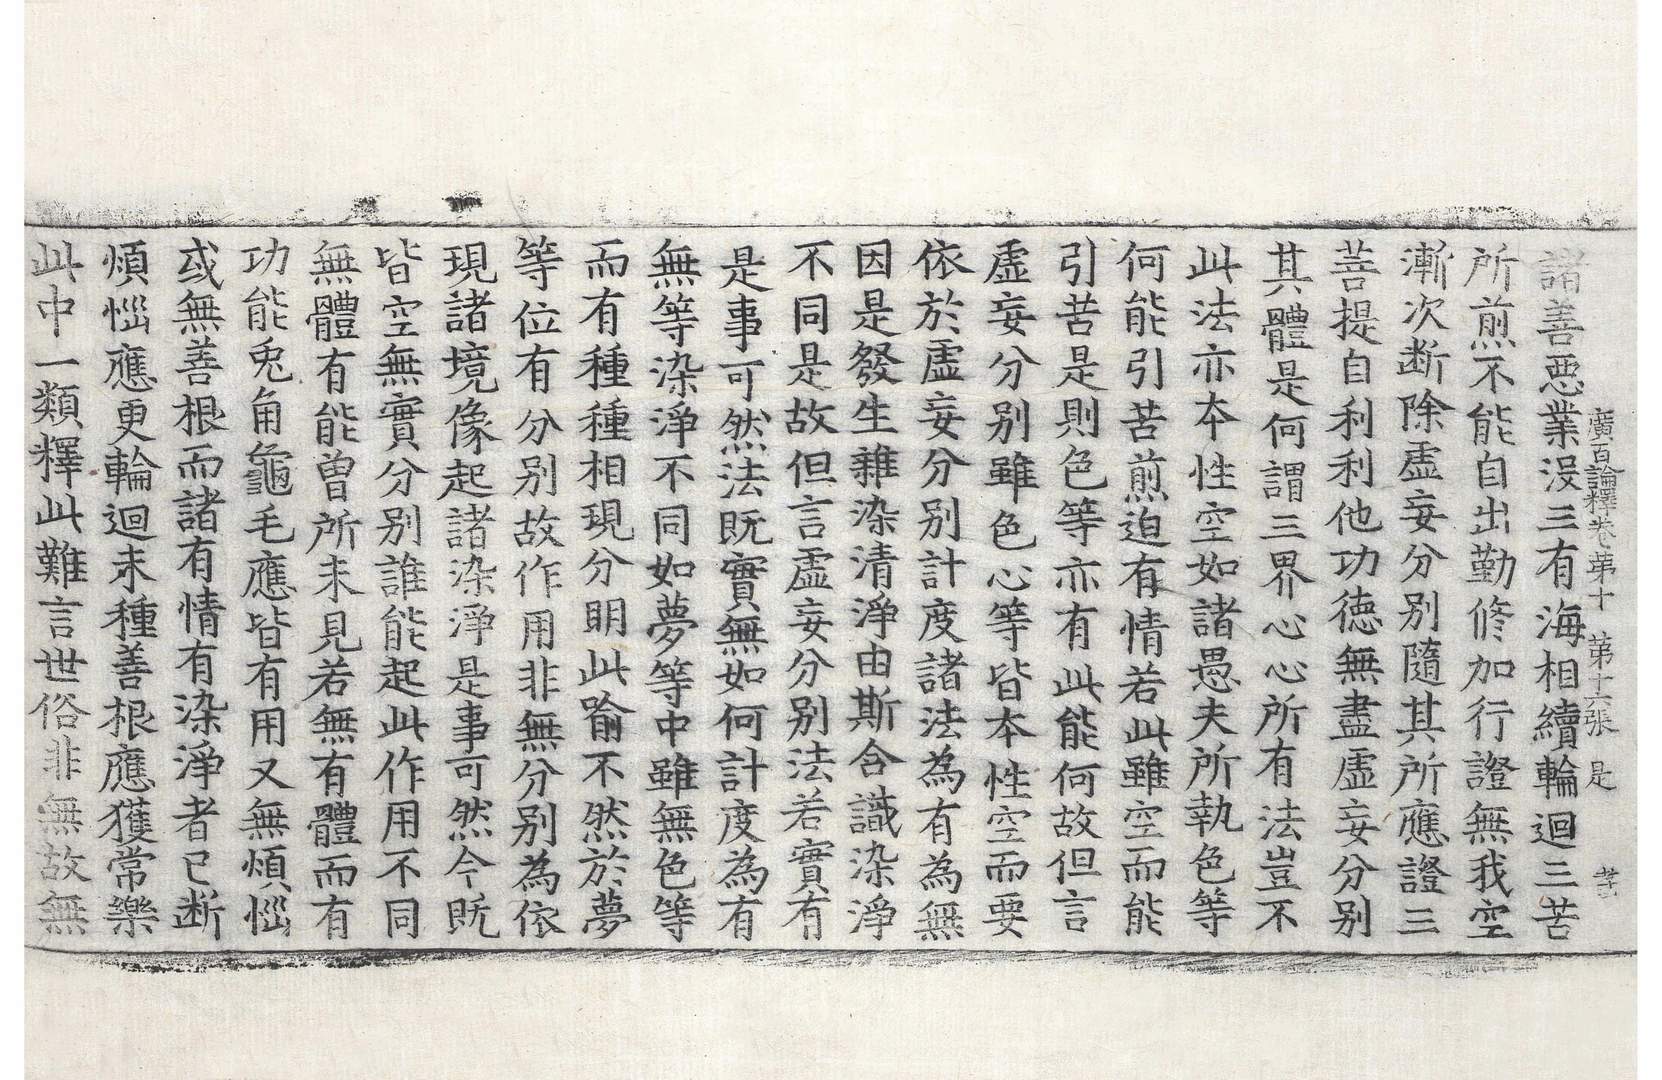 廣百論釋卷第十 第十六張 是
諸善惡業沒三有海相續輪迴三苦
所煎不能自出勤修加行證無我空
漸次断除虛妄分別隨其所應證三
菩提自利利他功德無盡虛妄分別
其體是何謂三界心心所有法豈不
此法亦本性空如諸愚夫所執色等
何能引苦煎迫有情若此雖空而能
引苦是則色等亦有此能何故但言
虛妄分別雖色心等皆本性空而要
依於虛妄分別計度諸法為有為無
因是發生雜染清淨由斯含識染淨
不同是故但言虛妄分別法若實有
是事可然法既實無如何計度為有
無等染淨不同如夢等中雖無色等
而有種種相現分明此喻不然於夢
等位有分別故作用非無分別為依
現諸境像起諸染淨是事可然今既
皆空無實分別誰能起此作用不同
無體有能曾所未見若無有體而有
功能兎角龜毛應皆有用又無煩惱
或無善根而諸有情有染淨者已断
煩惱應更輪迴未種善根應獲常樂
此中一類釋此難言世俗非無故無